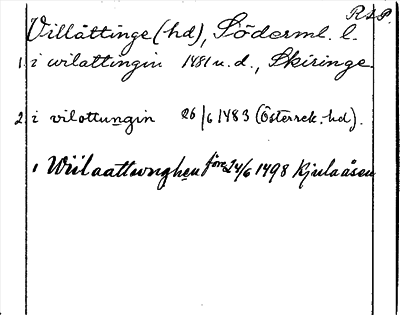 R.S.P.
Villåttinge (hd), Söderml. l.
1. i wilattingin 1481 u.d., Skiringe.
2. i vilottungin 26/6 1483 (Österrek.-hd).
i Wiilaattwnghen före 24/6 1498 Kjulaåsen